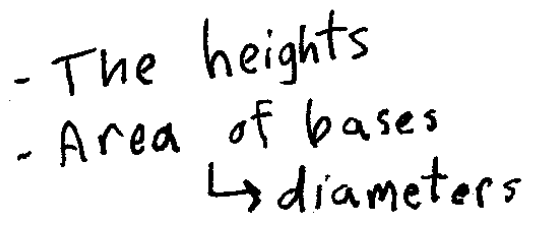 - The heights
- Area of bases
↳ diameters